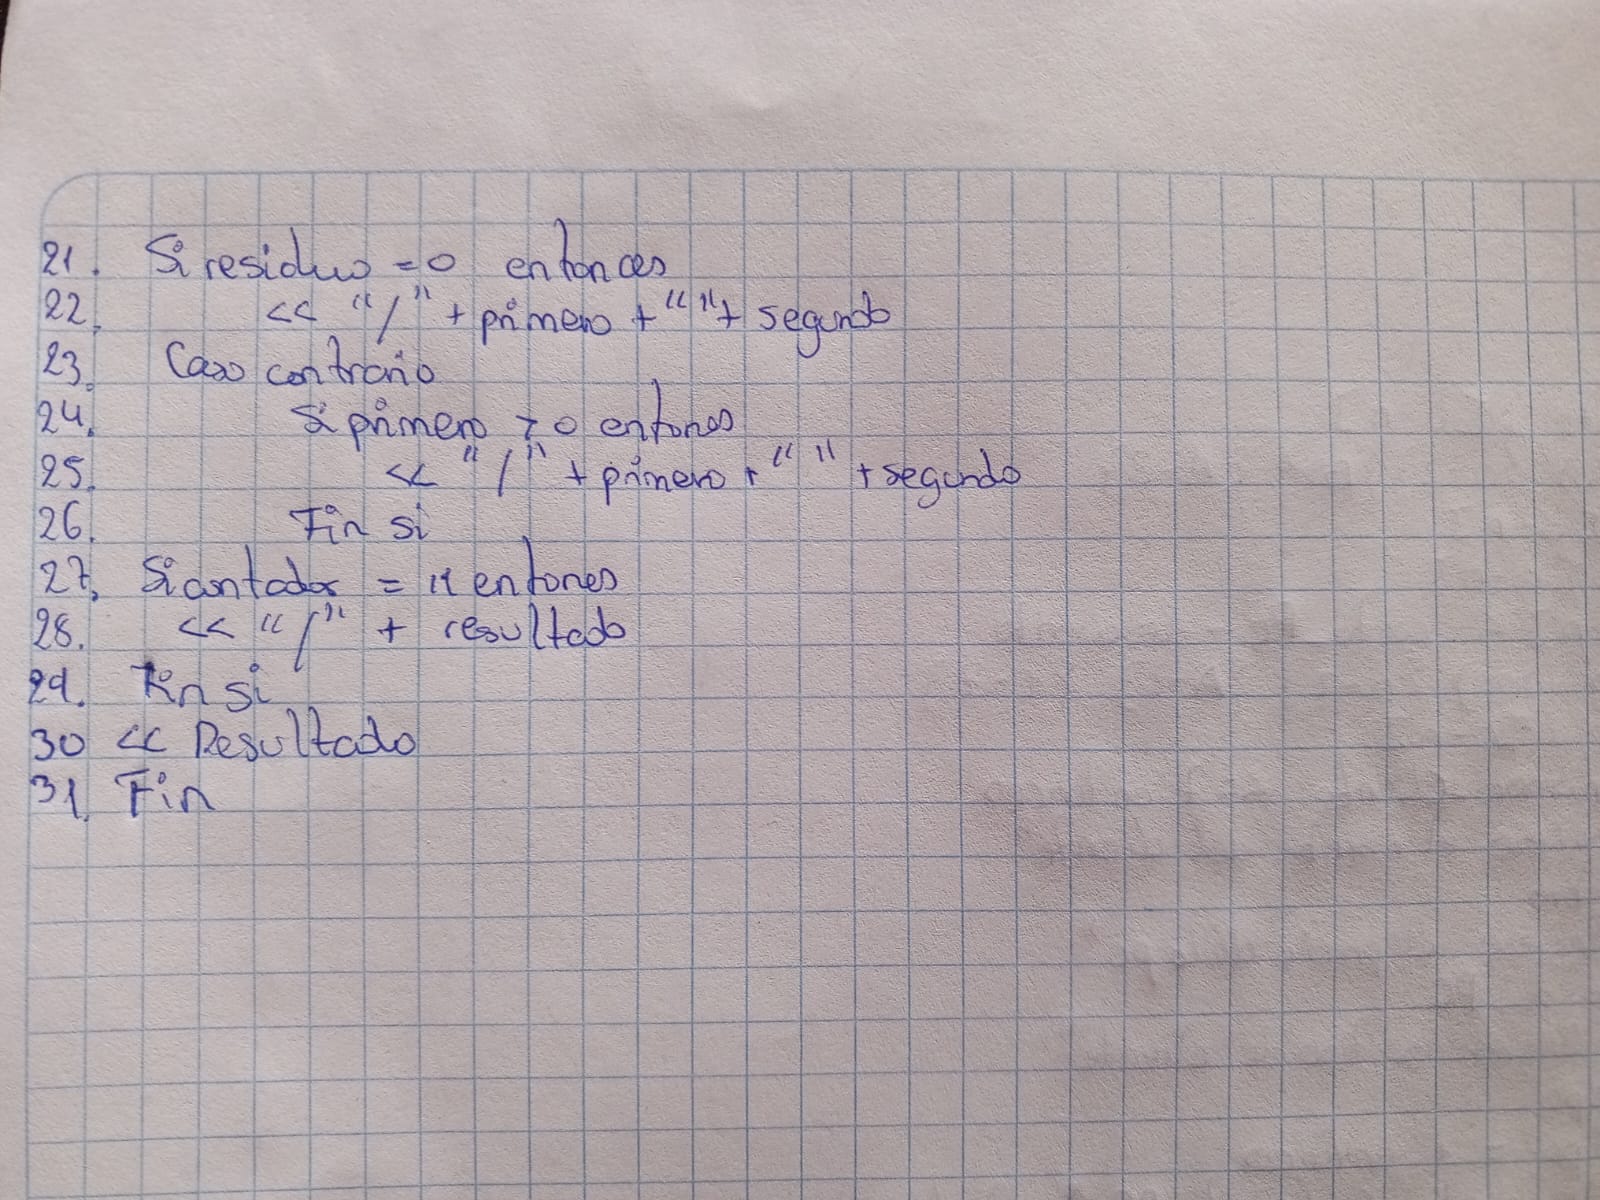 21. Si residuo = 0 entonces
22. << "/" + primero + " " + segundo
23. Caso contrario
24. Si primero > 0 entones
25. << "/" + primero + " " + segundo
26. Fin si
27. Si contador = 11 entones
28. << "/" + resultado
29. Fin si
30 << Resultado
31. Fin